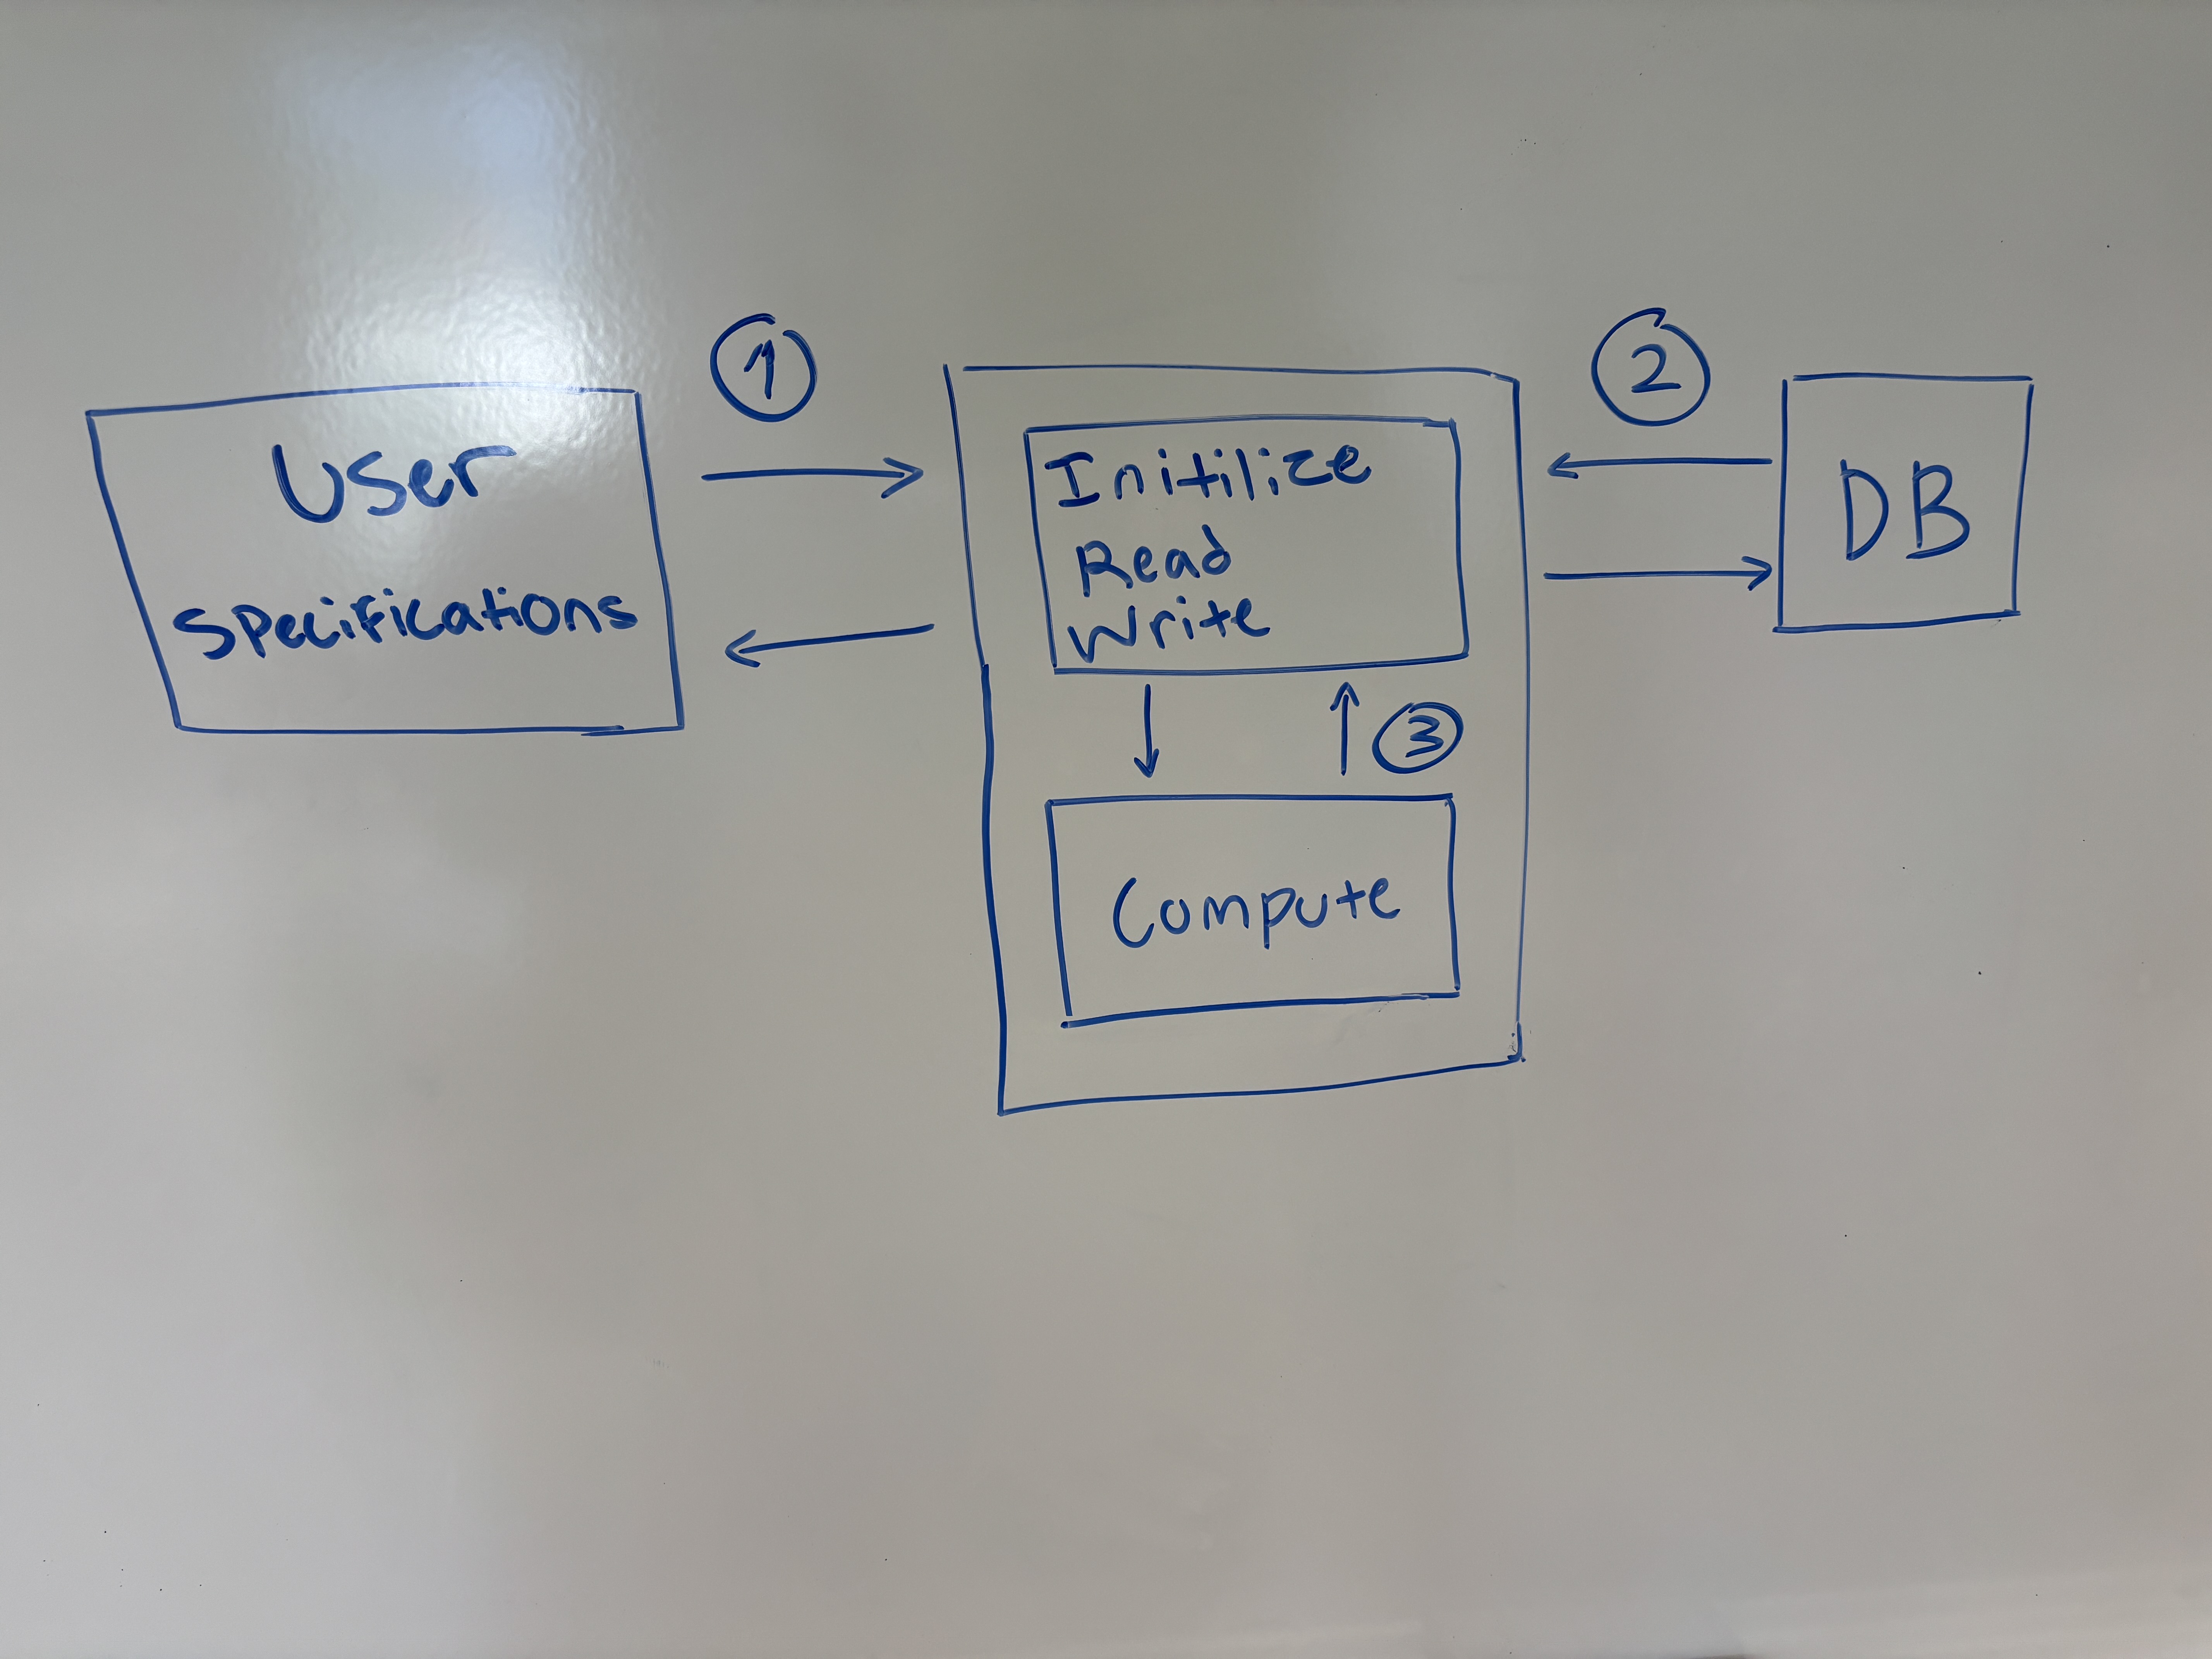 1
2
User
specifications
Initilize
Read
Write
DB
3
Compute